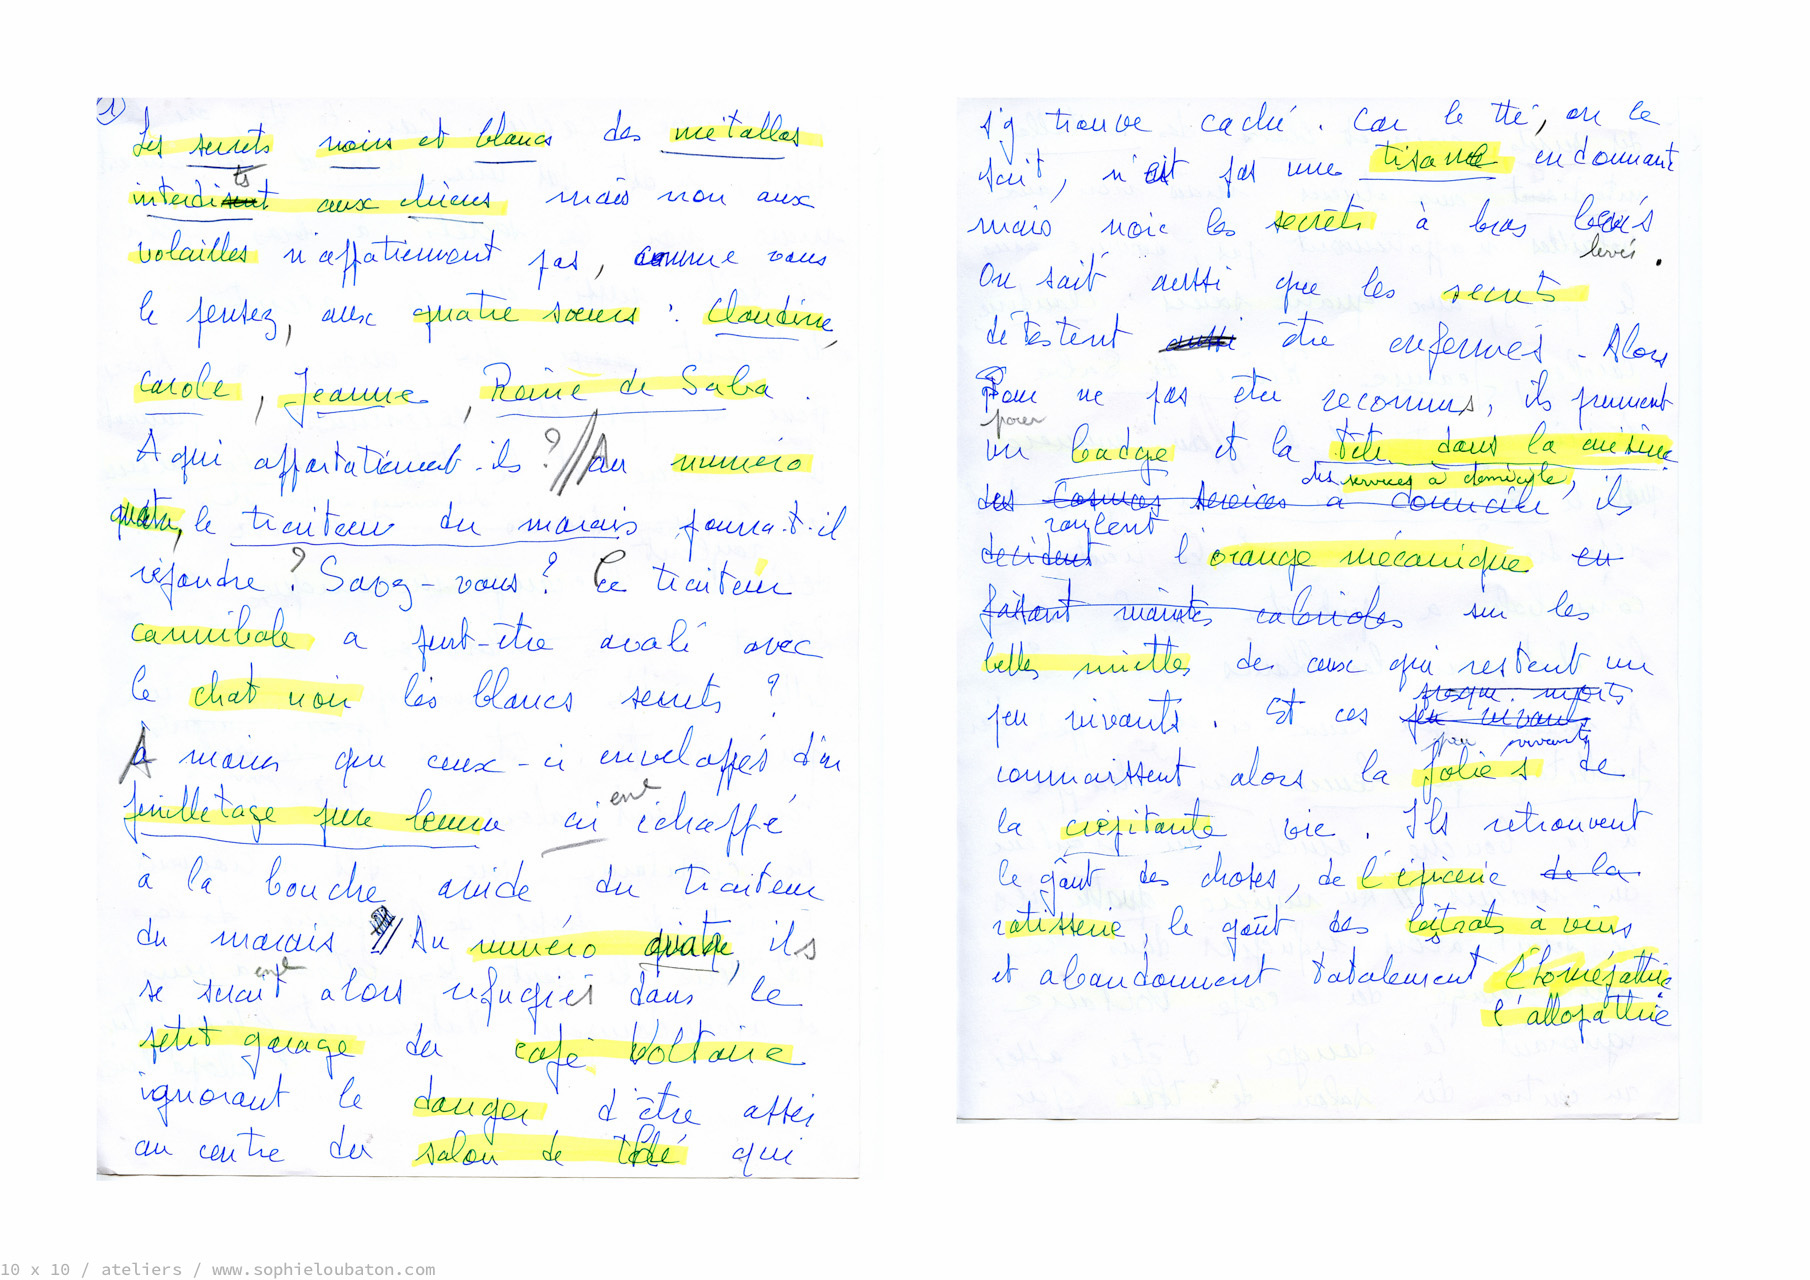 1)
Les secrets noirs et blancs des métallos
interdits aux chiens mais non aux
volailles n'appatiennent pas, comme vous
le pensez, aux quatre sœurs : Claudine,
Carole, Jeanne, Reine de Saba.
A qui appartatiennent-ils ? // Au numéro
quatre, le traiteur du marais pourra-t-il
répondre ? Savez-vous ? Ce traiteur
cannibale a peut-être avalé avec
le chat noir les blancs secrets ?
A moins que ceux-ci enveloppés d'un
feuilletage pure beurre
aient échappé
à la bouche avide du traiteur
du marais // Au numéro quatre, ils
se seraient alors réfugiés dans le
petit garage du café Voltaire
ignorant le danger d'être assis
au centre du salon de thé qui
s'y trouve caché. Car le thé, on le
sait, n'est pas une tisane endormant
mais noie les secrets à bras levés
levés.
On sait aussi que les secrets
détestent aussi être enfermés - Alors
Pour ne pas être reconnus, ils prennent
pour
un badge et la tête dans la cuisine
des services à domicile,
des Cosmos services à domicile ils
roulent
décident l'orange mécanique en
faisant maintes cabrioles sur les
belles miettes de ceux qui restent un
presque morts
peu vivants. Et ces peu vivants
peu vivants
connaissent alors la folies de
la crépitante vie. Ils retrouvent
le goût des choses, de l'épicerie de la
rotisserie, le goût des bistrots à vins
et abandonnent totalement l'homéopathie
l'allopathie
10 x 10 / ateliers / www.sophieloubaton.com